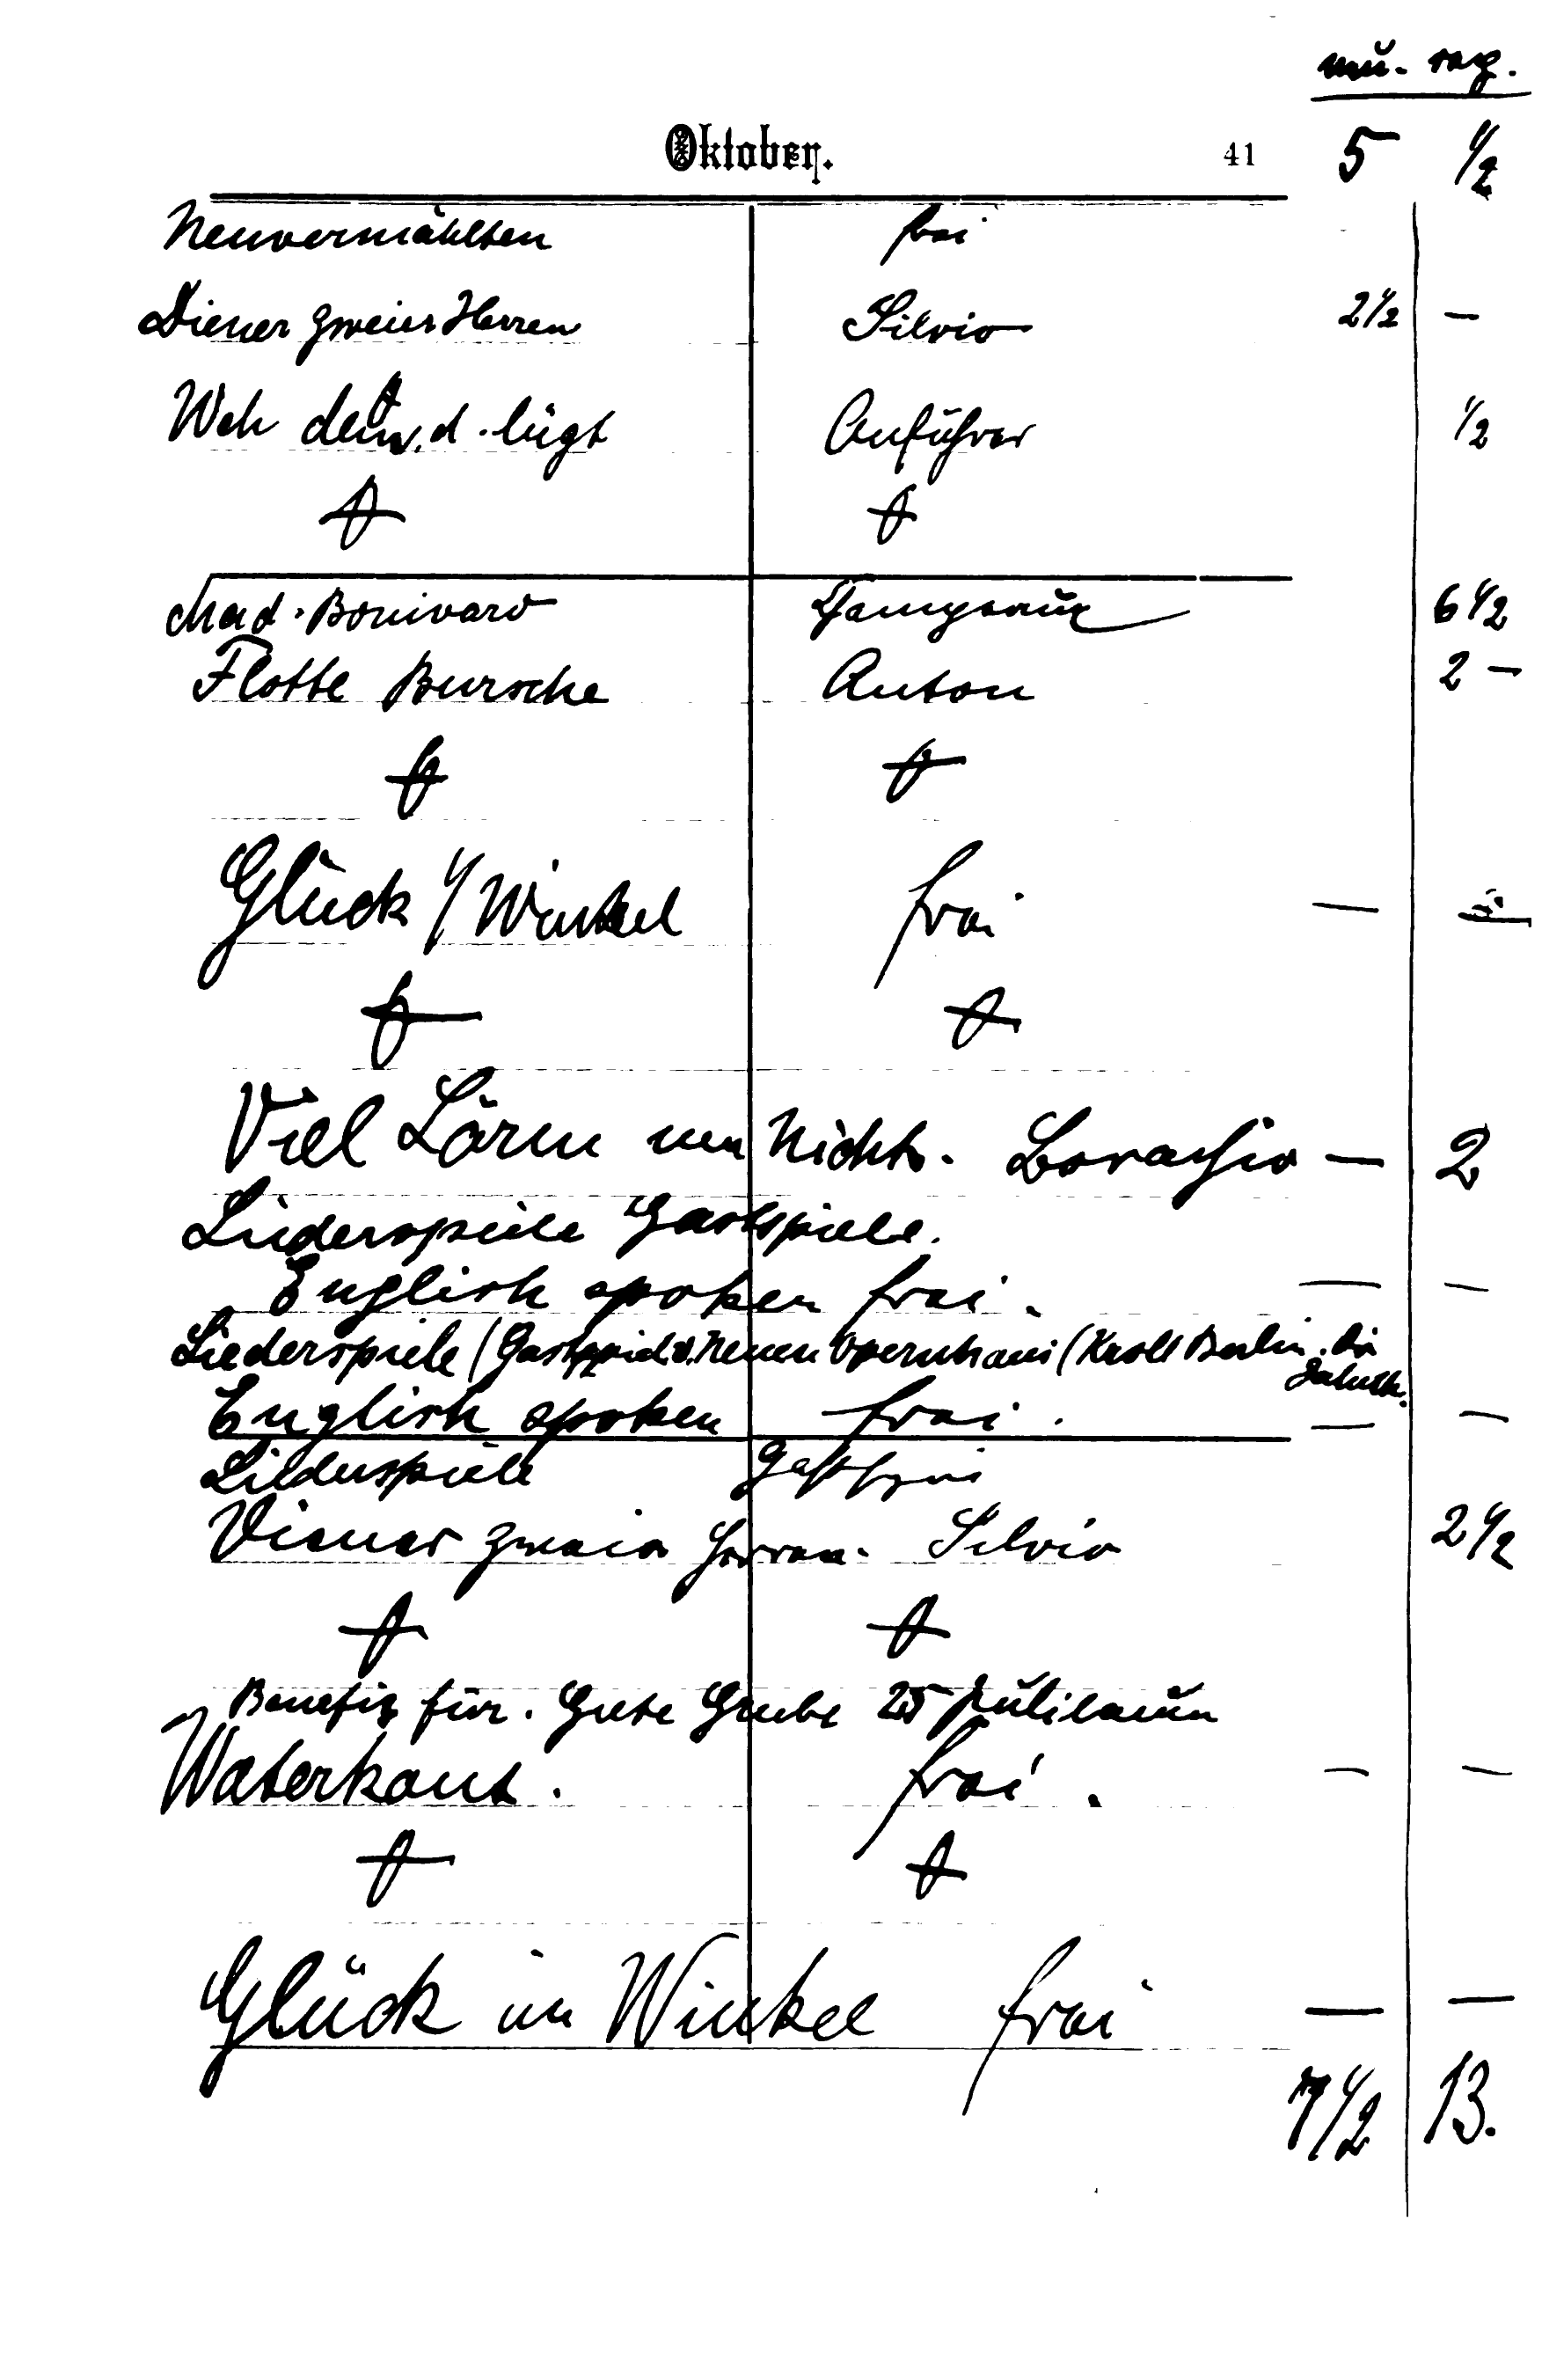 nu. rep.
Oktober. 41 5 1/2
Neuvermählten frei
Diener zweier Herren Silvio 2 1/2 —
Weh dem, d. lügt Anführer 1/2
Mad. Bonivard Champeaux 6 1/2
Flotte Bursche Anton 2 —
Glück i/ Winkel frei — —
Viel Lärm um Nichts. Borachio — 2
Liederspiele Gastspiele.
English spoken frei. — —
Liederspiele (Gastspiel d. Neuen Opernhaus (Kroll Berlin. Dir
English spoken frei. — —
Liederspiele Gastspiel
Diener zweier Herren. Silvio 2 1/2
Benefiz für. Grete Grube 25 Jubiläum
Waterkant. frei. — —
Glück im Winkel frei — —
7 1/2 13.